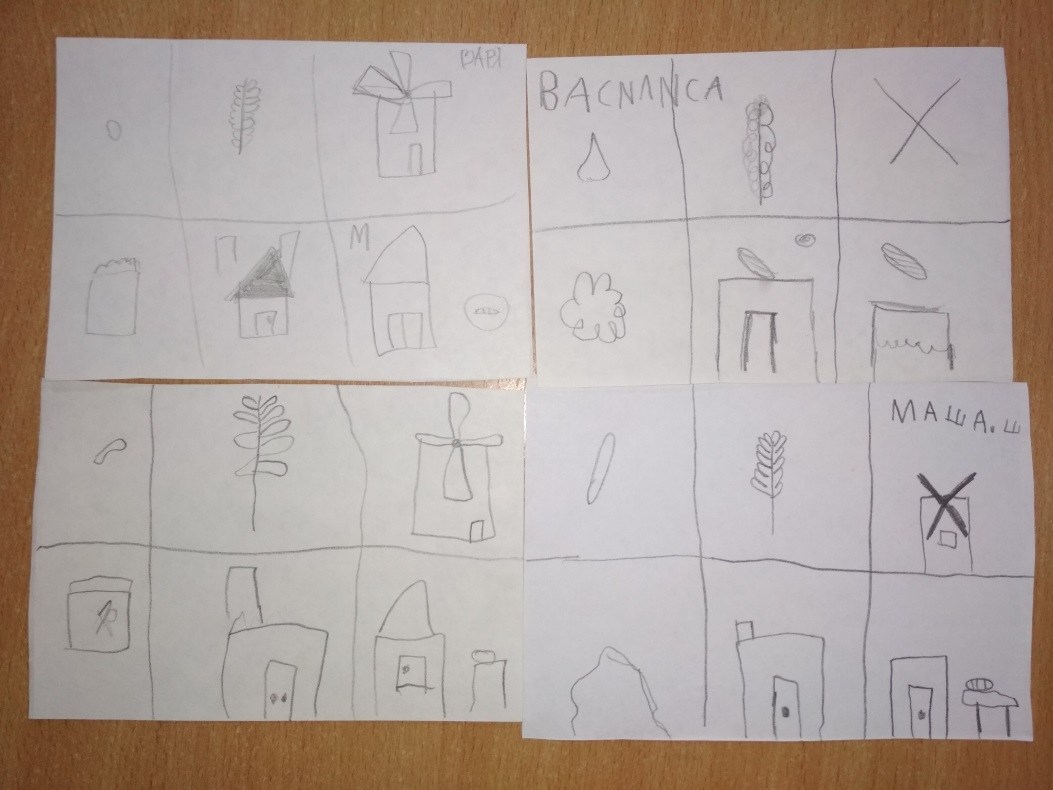 ВАРЯ
ВАСИЛИСА
М
МАША.Ш